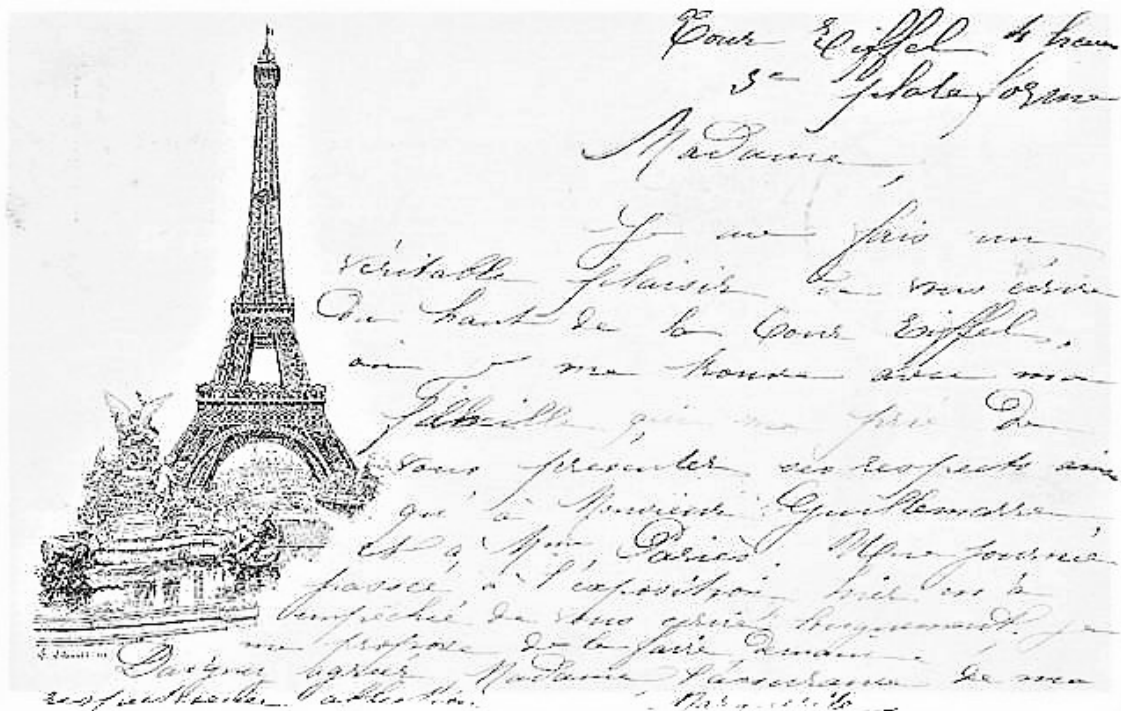 Tour Eiffel 4 heures
3e plateforme
Madame,
Je me fais un
véritable plaisir de vous écrire
du haut de la Tour Eiffel,
où je me trouve avec ma
qui me prie de
vous présenter ses respects ainsi
qu'à Monsieur Guillemarre
et à Mme Pariès. Une journée
passée à l'exposition hier m'a
empêchée de vous écrire longuement. Je
me propose de le faire demain.
Daignez agréer, Madame l'assurance de ma
respectueuse affection. Marguerite